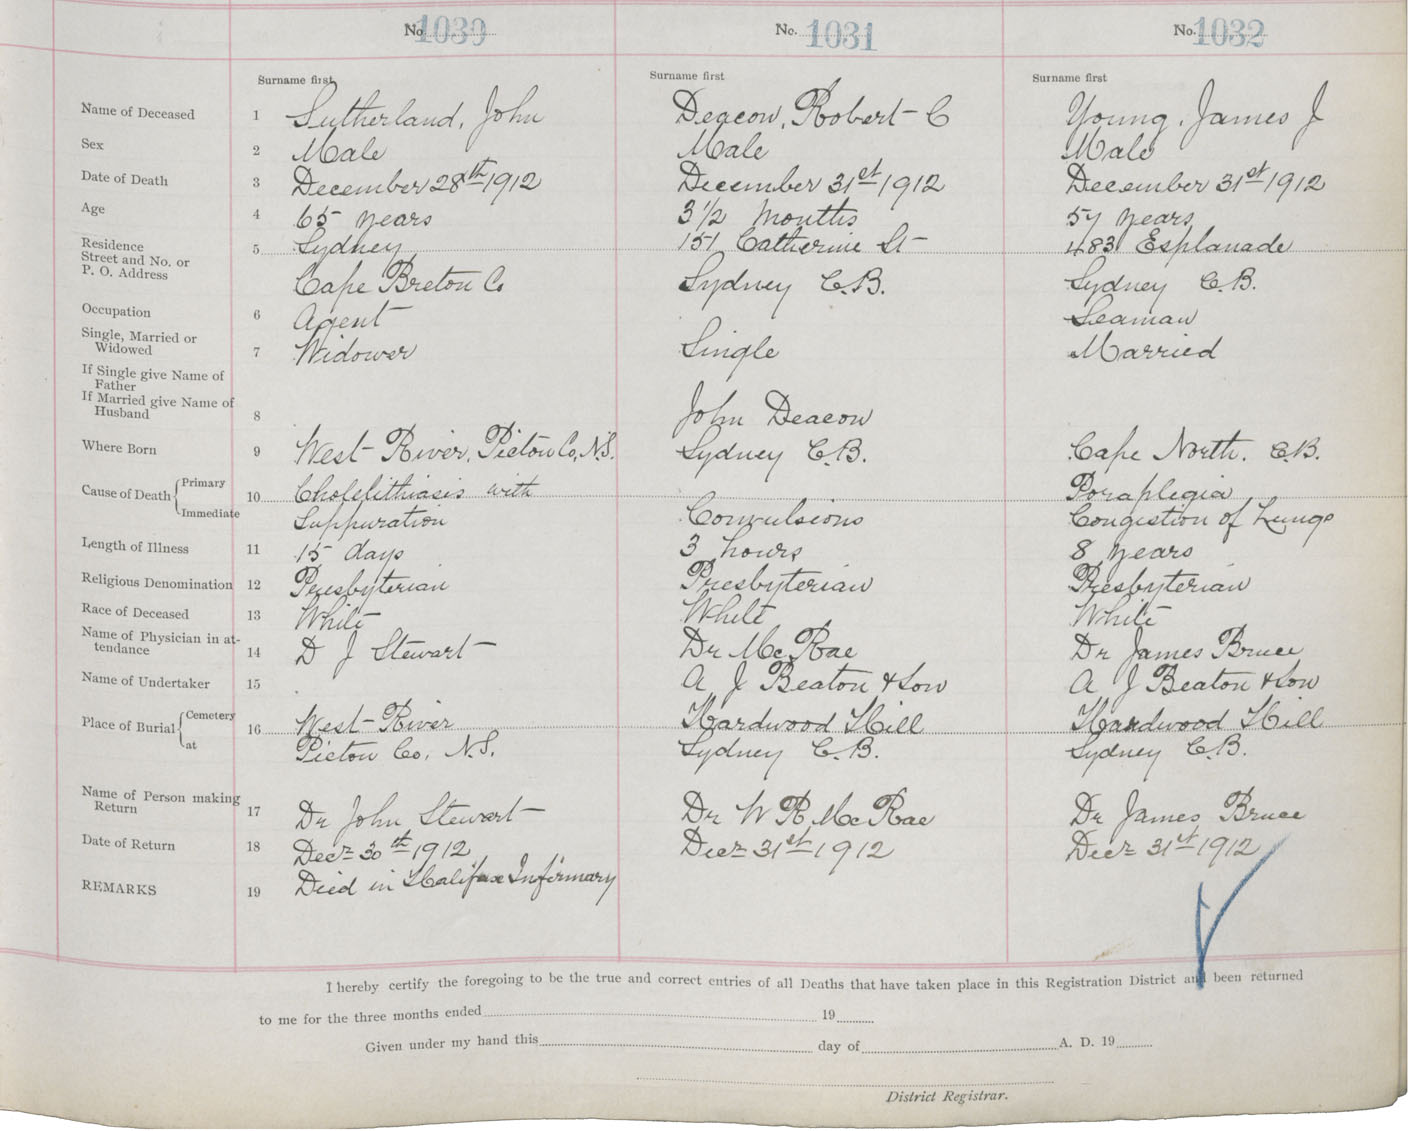 No. 1030 No. 1031 No. 1032
Surname first Surname first Surname first
Name of Deceased 1 Sutherland, John Deacon, Robert C Young, James J
Sex 2 Male Male Male
Date of Death 3 December 28th 1912 December 31st 1912 December 31st 1912
Age 4 65 years 3 1/2 months 57 years
Residence 5 Sydney 151 Catherine St 483 Esplanade
Street and No. or
P. O. Address Cape Breton Co Sydney C.B. Sydney C.B.
Occupation 6 Agent Seaman
Single, Married or
Widowed 7 Widower Single Married
If Single give Name of
Father
If Married give Name of
Husband 8 John Deacon
Where Born 9 West River, Pictou Co, N.S. Sydney C.B. Cape North. C.B.
Cause of Death Primary 10 Cholelithiasis with Paraplegia
Immediate Suppuration Convulsions Congestion of Lungs
Length of Illness 11 15 days 3 hours 8 years
Religious Denomination 12 Presbyterian Presbyterian Presbyterian
Race of Deceased 13 White White White
Name of Physician in at-
tendance 14 D J Stewart Dr McRae Dr James Bruce
Name of Undertaker 15 A J Beaton & Son A J Beaton & Son
Place of Burial Cemetery 16 West River Hardwood Hill Hardwood Hill
at Pictou Co, N.S. Sydney C.B. Sydney C.B.
Name of Person making
Return 17 Dr John Stewart Dr W R McRae Dr James Bruce
Date of Return 18 Decr 30th 1912 Decr 31st 1912 Decr 31st 1912
REMARKS 19 Died in Halifax Infirmary
I hereby certify the foregoing to be the true and correct entries of all Deaths that have taken place in this Registration District and been returned
to me for the three months ended 19
Given under my hand this day of A. D. 19
District Registrar.